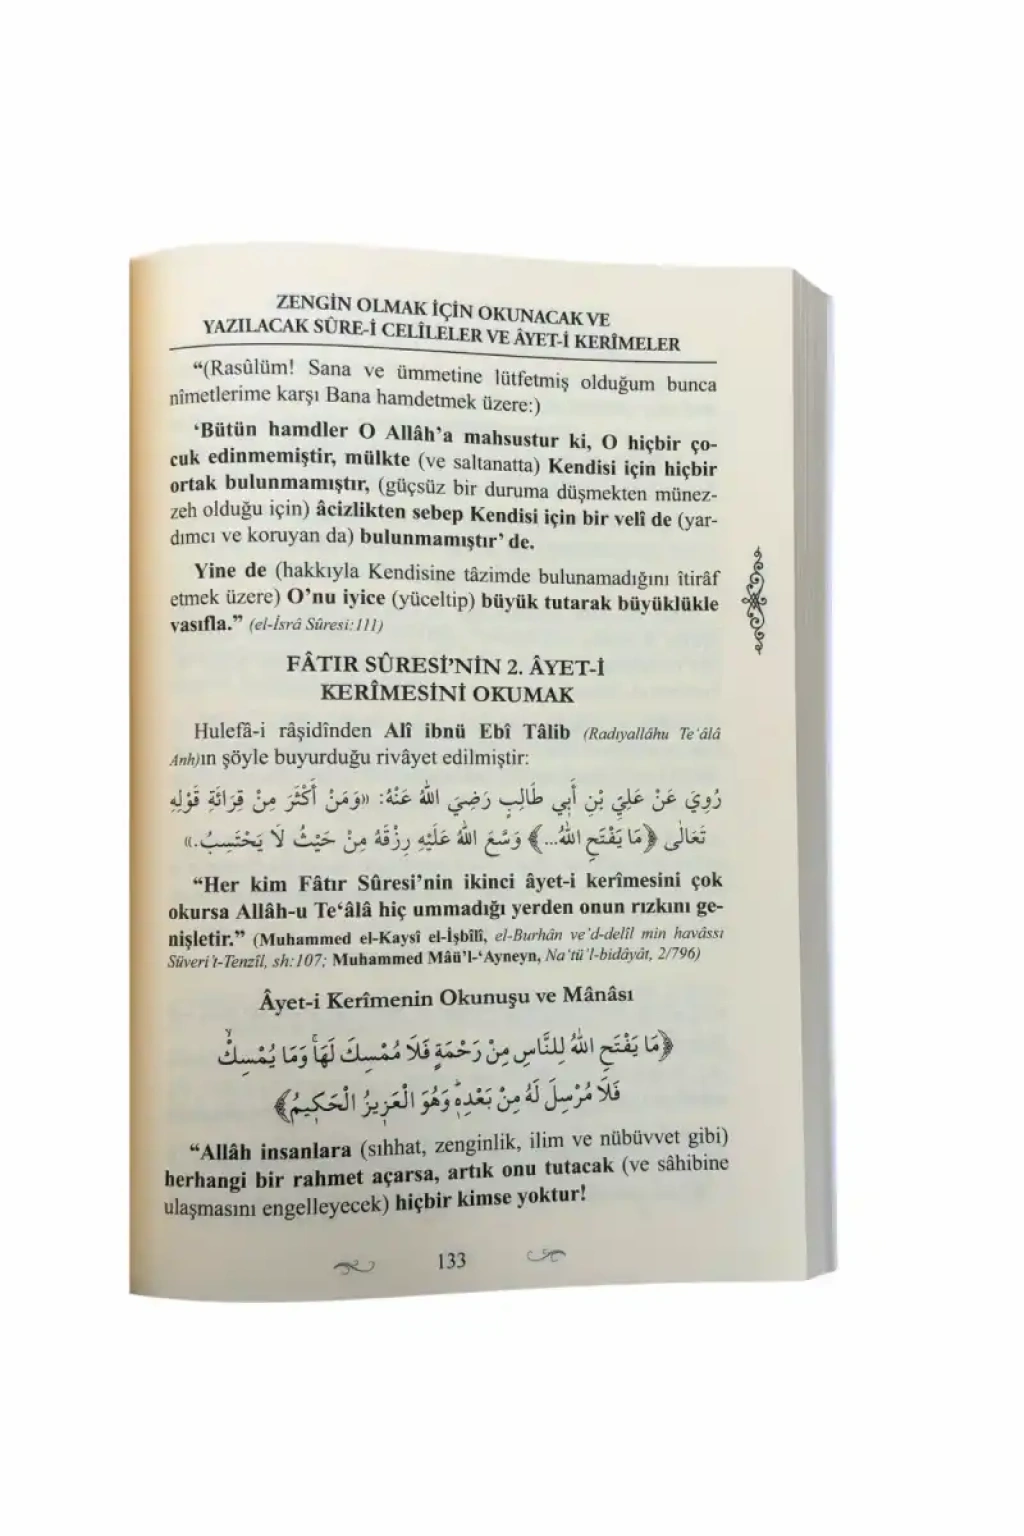 ZENGİN OLMAK İÇİN OKUNACAK VE
YAZILACAK SÛRE-İ CELÎLELER VE ÂYET-İ KERÎMELER
“(Rasûlüm! Sana ve ümmetine lütfetmiş olduğum bunca
nîmetlerime karşı Bana hamdetmek üzere:)
‘Bütün hamdler O Allâh’a mahsustur ki, O hiçbir ço-
cuk edinmemiştir, mülkte (ve saltanatta) Kendisi için hiçbir
ortak bulunmamıştır, (güçsüz bir duruma düşmekten münez-
zeh olduğu için) âcizlikten sebep Kendisi için bir velî de (yar-
dımcı ve koruyan da) bulunmamıştır’ de.
Yine de (hakkıyla Kendisine tâzimde bulunamadığını îtirâf
etmek üzere) O’nu iyice (yüceltip) büyük tutarak büyüklükle
vasıfla.” (el-İsrâ Sûresi:111)
FÂTIR SÛRESİ’NİN 2. ÂYET-İ
KERÎMESİNİ OKUMAK
Hulefâ-i râşidînden Alî ibnü Ebî Tâlib (Radıyallâhu Te‘âlâ
Anh)ın şöyle buyurduğu rivâyet edilmiştir:
رُوِيَ عَنْ عَلِيِّ بْنِ أَبِي طَالِبٍ رَضِيَ اللّٰهُ عَنْهُ: «وَمَنْ أَكْثَرَ مِنْ قِرَائَةِ قَوْلِهِ
تَعَالٰى ﴿مَا يَفْتَحِ اللّٰهُ...﴾ وَسَّعَ اللّٰهُ عَلَيْهِ رِزْقَهُ مِنْ حَيْثُ لَا يَحْتَسِبُ.»
“Her kim Fâtır Sûresi’nin ikinci âyet-i kerîmesini çok
okursa Allâh-u Te‘âlâ hiç ummadığı yerden onun rızkını ge-
nişletir.” (Muhammed el-Kaysî el-İşbîlî, el-Burhân ve’d-delîl min havâssi
Süveri’t-Tenzîl, sh:107; Muhammed Mâü’l-‘Ayneyn, Na‘tü’l-bidâyât, 2/796)
Âyet-i Kerîmenin Okunuşu ve Mânâsı
﴿مَا يَفْتَحِ اللّٰهُ لِلنَّاسِ مِنْ رَحْمَةٍ فَلَا مُمْسِكَ لَهَاۚ وَمَا يُمْسِكْۙ
فَلَا مُرْسِلَ لَهُ مِنْ بَعْدِهٖۜ وَهُوَ الْعَزِيزُ الْحَكِيمُ﴾
“Allâh insanlara (sıhhat, zenginlik, ilim ve nübüvvet gibi)
herhangi bir rahmet açarsa, artık onu tutacak (ve sâhibine
ulaşmasını engelleyecek) hiçbir kimse yoktur!
133